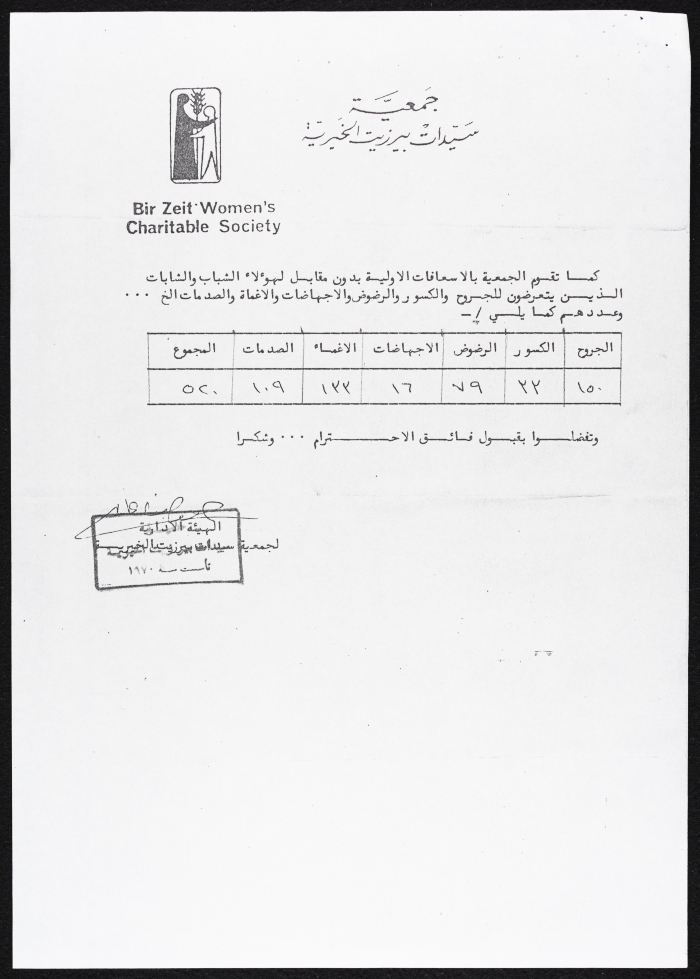 جمعيّة
سيّدات بيرزيت الخيريّة
Bir Zeit Women's
Charitable Society
كمـا تقـوم الجمعية بالاسعافات الاولية بدون مقابل لهوءلاء الشباب والشابات
الذيـن يتعرضون للجروح والكسور والرضوض والاجهاضات والاغماة والصدمات الخ ٠٠٠
وعددهـم كمـا يلـي /ـ
الجروح الكسور الرضوض الاجهاضات الاغمـاء الصدمات المجموع
١٥٠ ٣٣ ٧٩ ١٦ ١٣٣ ١٠٩ ٥٢٠
وتفضلـوا بقبـول فـائـق الاحـتـرام ٠٠٠ وشكرا
الهيئة الادارية
لجمعية سيدات بيرزيت الخيريـة
تأسست سنة ١٩٧٠